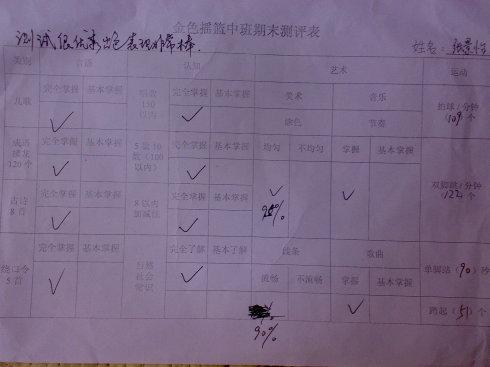 金色摇篮中班期末测评表
测试很优秀出色表现非常棒.
姓名:
类别 言语 认知 艺术 运动
儿歌 完全掌握 基本掌握 唱数150以内 完全掌握 基本掌握 美术 音乐 拍球/分钟(109)个
涂色 节奏
成语接龙120个 完全掌握 基本掌握 5数10数(100以内) 完全掌握 基本掌握 均匀 不均匀 掌握 基本掌握
古诗8首 完全掌握 基本掌握 8以内加减法 完全掌握 基本掌握 双脚跳/分钟(122)个
绕口令5首 完全掌握 基本掌握 自然社会常识 完全了解 基本了解 线条 歌曲 单脚站(90)秒
流畅 不流畅 掌握 基本掌握 蹲起(51)个
90%